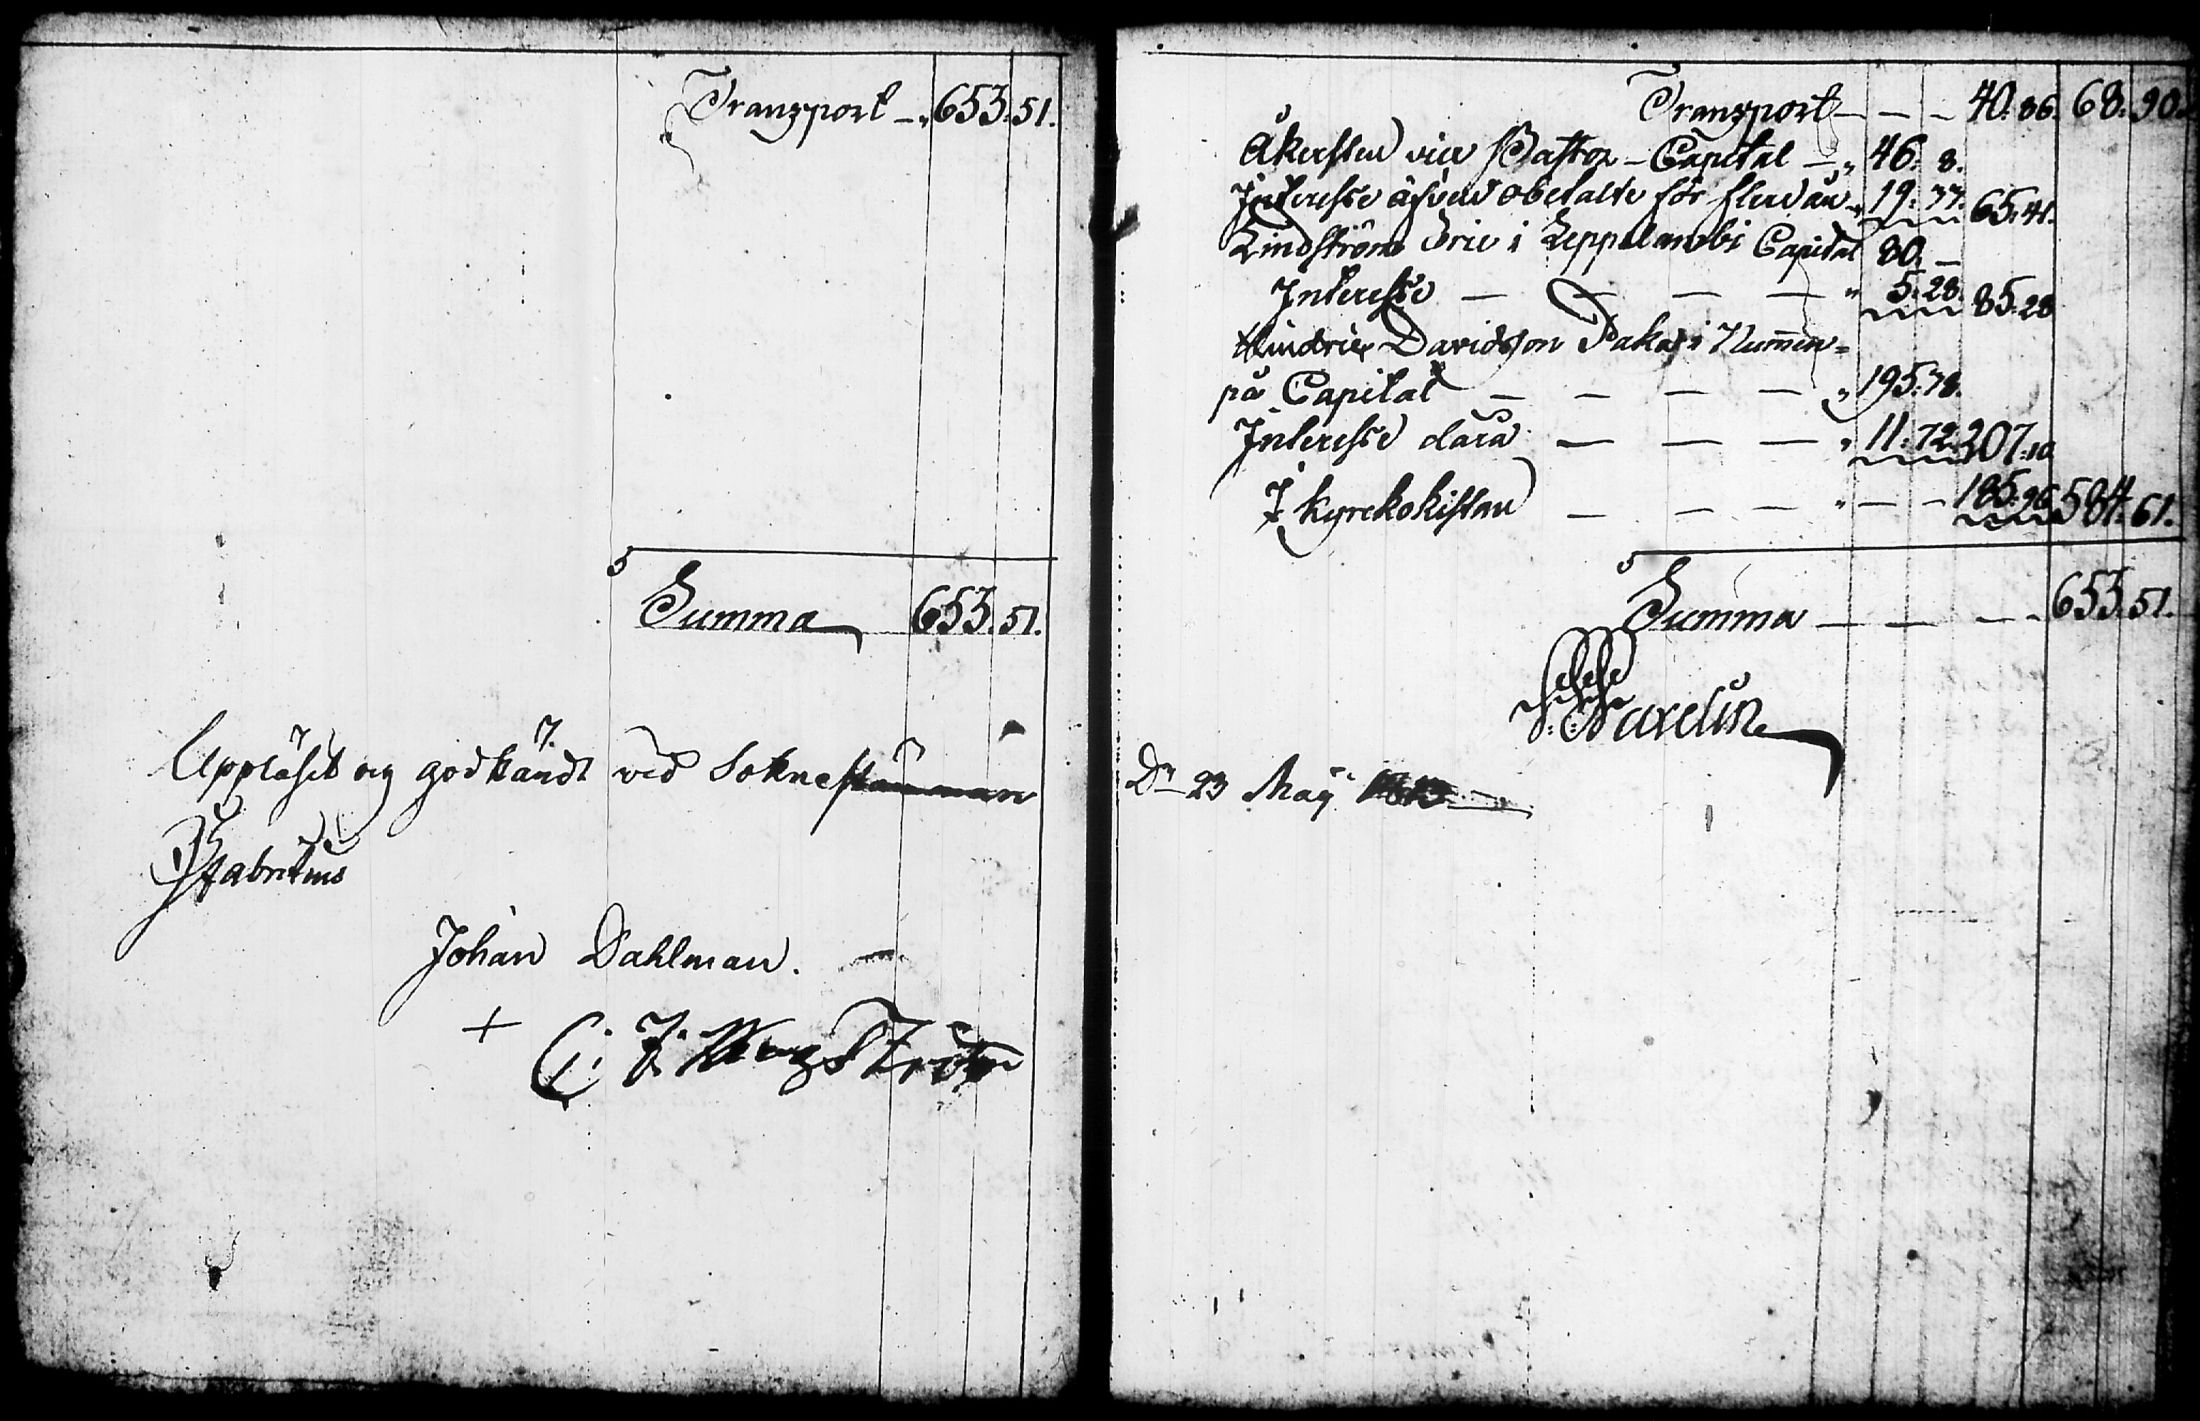 Transport — 653. 51.
Summa 653. 51.
Uppläsit og godkändt vid Sockne stämman
Fabritius
Johan Dahlman.
+ C: J: Bergström
Transport — — — 40. 86. 68. 90.
Åkersten Capital — 46. 8.
Interesse äfven obetalte för flera år 19. 77. 65. 41.
Lindström Eric i Leppelambi Capital 80. —
Interesse — — — — 5. 28. 85. 28
Hindric Davidsson Paka i Nummen=
på Capital — — — — 195. 78.
Interesse dära — — — 11. 72. 207. 10
I kyrckokistan — — — — — 185. 96 584. 61.
Summa — — — — 653. 51.
Dn 23 Maij